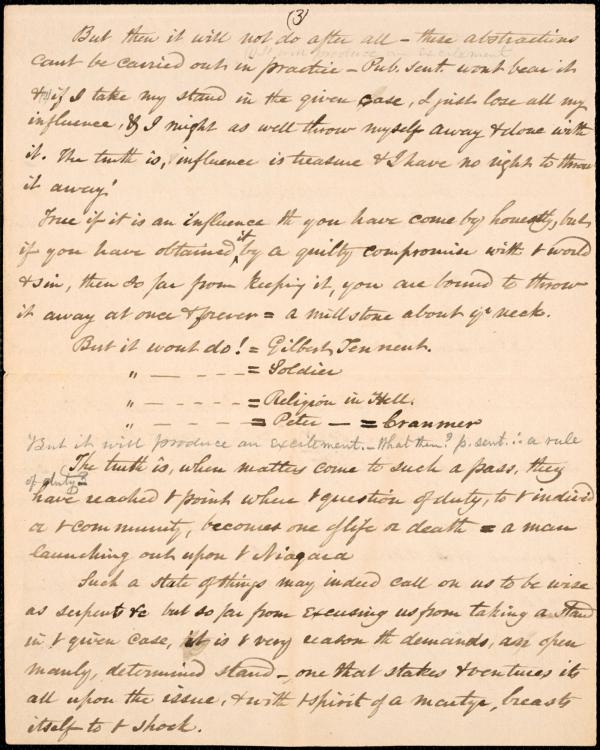 (3)
But then it will not do after all – these abstractions
cant be carried out in practice – Pub. sent. wont bear it
& if I take my stand in the given case, I just lose all my
influence, & I might as well throw myself away & done with
it. The truth is, influence is treasure & I have no right to throw
it away!
True if it is an influence th you have come by honestly, but
if you have obtained it by a guilty compromise with t world
& sin, then so far from keeping it, you are bound to throw
it away at once & forever = a millstone about yr neck.
But it wont do! = Gilbert Tennent.
" — - - - = Soldier
" — - - - = Religion in Hell.
" — - - - = Peter — = Cranmer
But it will produce an excitement. – What then? p. sent. is a rule
of duty?
The truth is, when matters come to such a pass, they
have reached t point where t question of duty, to t individ
or t community, becomes one of life or death = a man
launching out upon t Niagara
Such a state of things may indeed call on us to be wise
as serpents &c but so far from excusing us from taking a stand
in t given case, it is t very reason th demands, an open
manly, determined stand – one that stakes & ventures its
all upon the issue, & with t spirit of a martyr, breasts
itself to t shock.